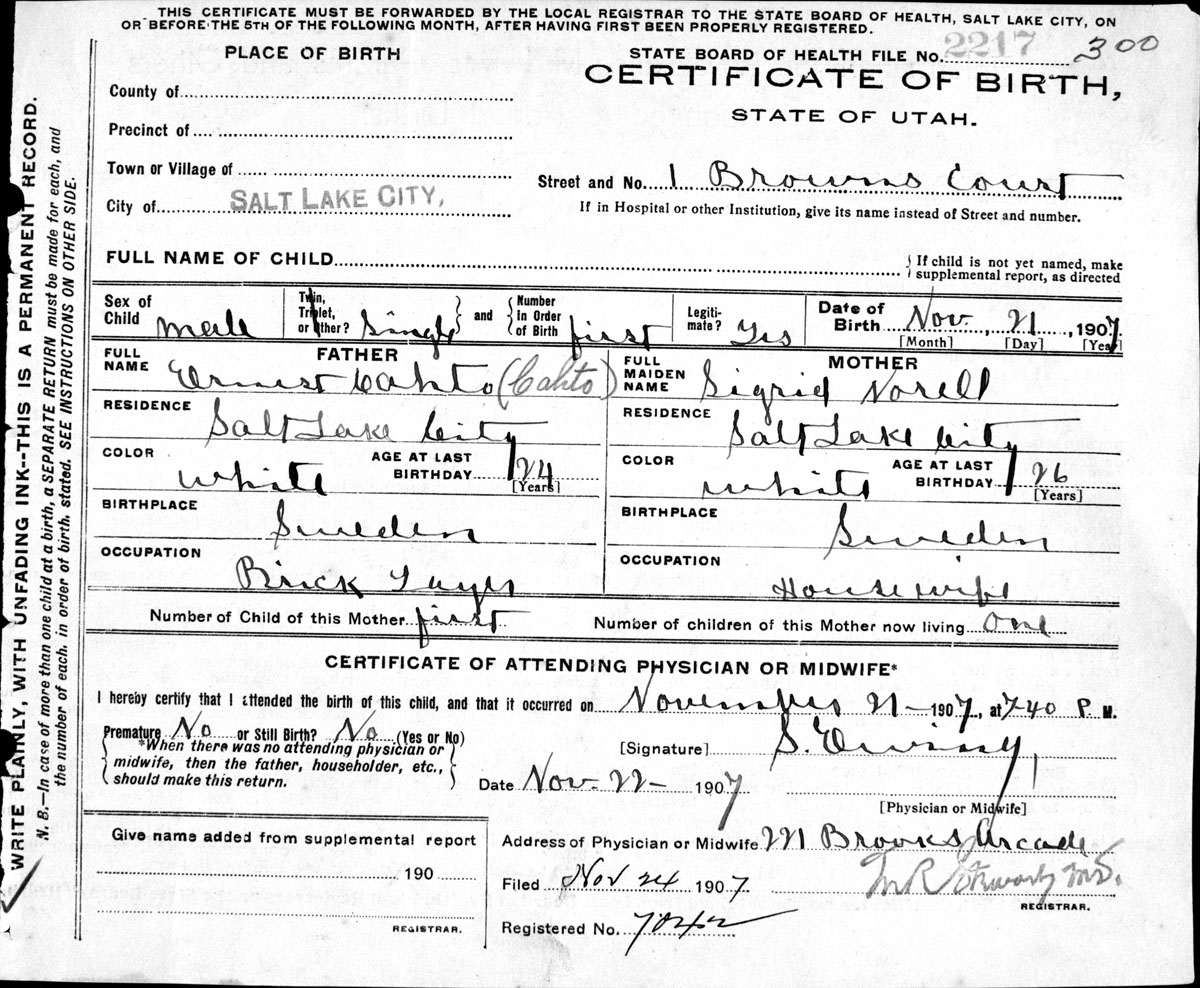 THIS CERTIFICATE MUST BE FORWARDED BY THE LOCAL REGISTRAR TO THE STATE BOARD OF HEALTH, SALT LAKE CITY, ON
OR BEFORE THE 5TH OF THE FOLLOWING MONTH, AFTER HAVING FIRST BEEN PROPERLY REGISTERED.
WRITE PLAINLY, WITH UNFADING INK--THIS IS A PERMANENT RECORD.
N. B.—In case of more than one child at a birth, a SEPARATE RETURN must be made for each, and
the number of each, in order of birth, stated. SEE INSTRUCTIONS ON OTHER SIDE.
PLACE OF BIRTH
County of
Precinct of
Town or Village of
City of SALT LAKE CITY,
STATE BOARD OF HEALTH FILE No. 2217 300
CERTIFICATE OF BIRTH,
STATE OF UTAH.
Street and No. 1 Browns Court
If in Hospital or other Institution, give its name instead of Street and number.
FULL NAME OF CHILD
{ If child is not yet named, make
supplemental report, as directed
Sex of Child male
Twin, Triplet, or other? Single
and
Number In Order of Birth first
Legitimate? Yes
Date of Birth Nov. 21, 1907
[Month] [Day] [Year]
FATHER
FULL NAME Ernest Cahto (Cahto)
RESIDENCE Salt Lake City
COLOR white
AGE AT LAST BIRTHDAY 24
[Years]
BIRTHPLACE Sweden
OCCUPATION Brick Layer
MOTHER
FULL MAIDEN NAME Sigrid Norell
RESIDENCE Salt Lake City
COLOR white
AGE AT LAST BIRTHDAY 26
[Years]
BIRTHPLACE Sweden
OCCUPATION Housewife
Number of Child of this Mother first
Number of children of this Mother now living one
CERTIFICATE OF ATTENDING PHYSICIAN OR MIDWIFE*
I hereby certify that I attended the birth of this child, and that it occurred on November 21 - 1907, at 7-40 P. M.
Premature No or Still Birth? No (Yes or No)
*When there was no attending physician or
midwife, then the father, householder, etc.,
should make this return.
[Signature] S. Ewing
Date Nov. 22 - 1907
[Physician or Midwife]
Address of Physician or Midwife 221 Brooks Arcade
Filed Nov 24 1907
M.D.
REGISTRAR.
Registered No. 7042
Give name added from supplemental report
190
REGISTRAR.